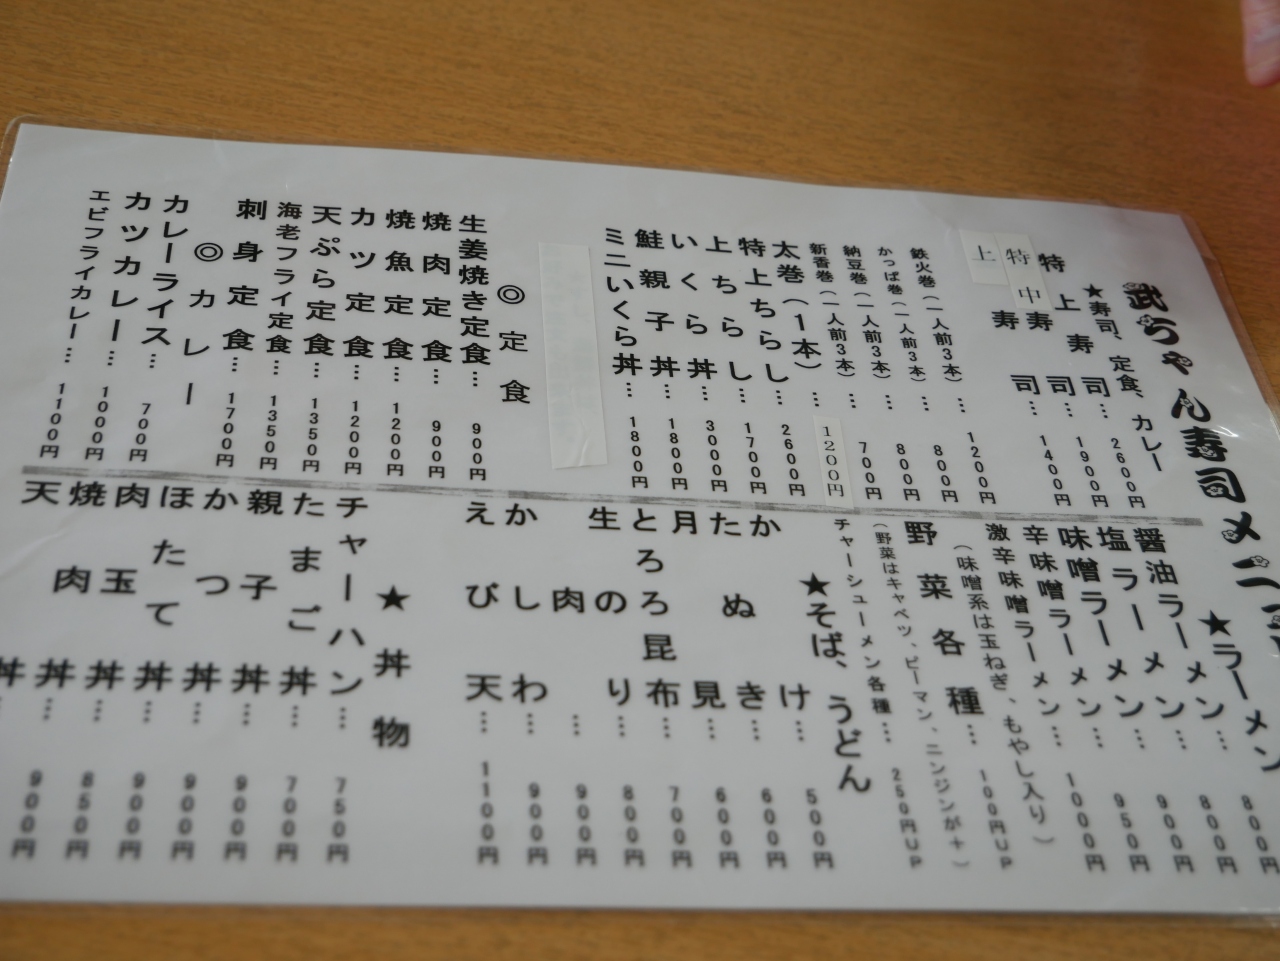 武ちゃん寿司メニュー
★寿司、定食、カレー
特上寿司… 2600円
特中寿司… 1900円
上寿司… 1400円
鉄火巻（一人前3本）… 1200円
かっぱ巻（一人前3本）… 800円
納豆巻（一人前3本）… 800円
新香巻（一人前3本）… 700円
太巻（1本）… 1200円
特上ちらし… 2600円
上ちらし… 1700円
いくら丼… 3000円
鮭親子丼… 1800円
ミニいくら丼… 1800円
◎定食
生姜焼き定食… 900円
焼肉定食… 900円
焼魚定食… 1200円
カツ定食… 1200円
天ぷら定食… 1350円
海老フライ定食… 1350円
刺身定食… 1700円
◎カレー
カレーライス… 700円
カツカレー… 1000円
エビフライカレー… 1100円
★ラーメン
醤油ラーメン… 800円
塩ラーメン… 800円
味噌ラーメン… 900円
辛味噌ラーメン… 950円
激辛味噌ラーメン… 1000円
（味噌系は玉ねぎ、もやし入り）
野菜各種… 100円UP
（野菜はキャベツ、ピーマン、ニンジンが＋）
チャーシューメン各種… 250円UP
★そば、うどん
かけ… 500円
たぬき… 600円
月見… 600円
とろろ昆布… 700円
生のり… 800円
肉… 900円
かしわ… 900円
えび天… 1100円
★丼物
チャーハン… 750円
たまご丼… 700円
親子丼… 900円
かつ丼… 900円
ほたて丼… 900円
肉玉丼… 850円
焼肉丼… 900円
天丼